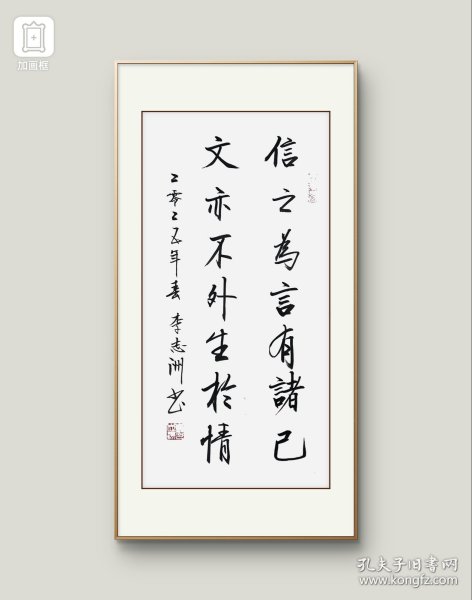 加画框
信之為言有諸己
文亦不外生於情
二零二五年春 李志洲书
孔夫子旧书网
www.kongfz.com